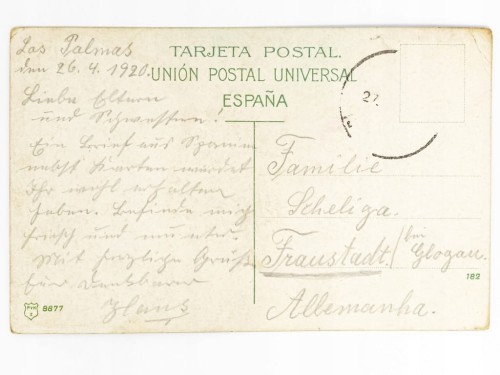 Las Palmas
den 26.4.1920.
TARJETA POSTAL.
UNIÓN POSTAL UNIVERSAL
ESPAÑA
21.
Liebe Eltern
und Schwestern!
Ein Brief aus Spanien
nebst Karten werdet
Ihr wohl erhalten
haben. Befinde mich
frisch und munter.
Mit herzliche Gruß
Euer dankbarer
Hans
Familie
Scheliga.
Fraustadt/bei
Glogau.
Allemanha.
8877
182